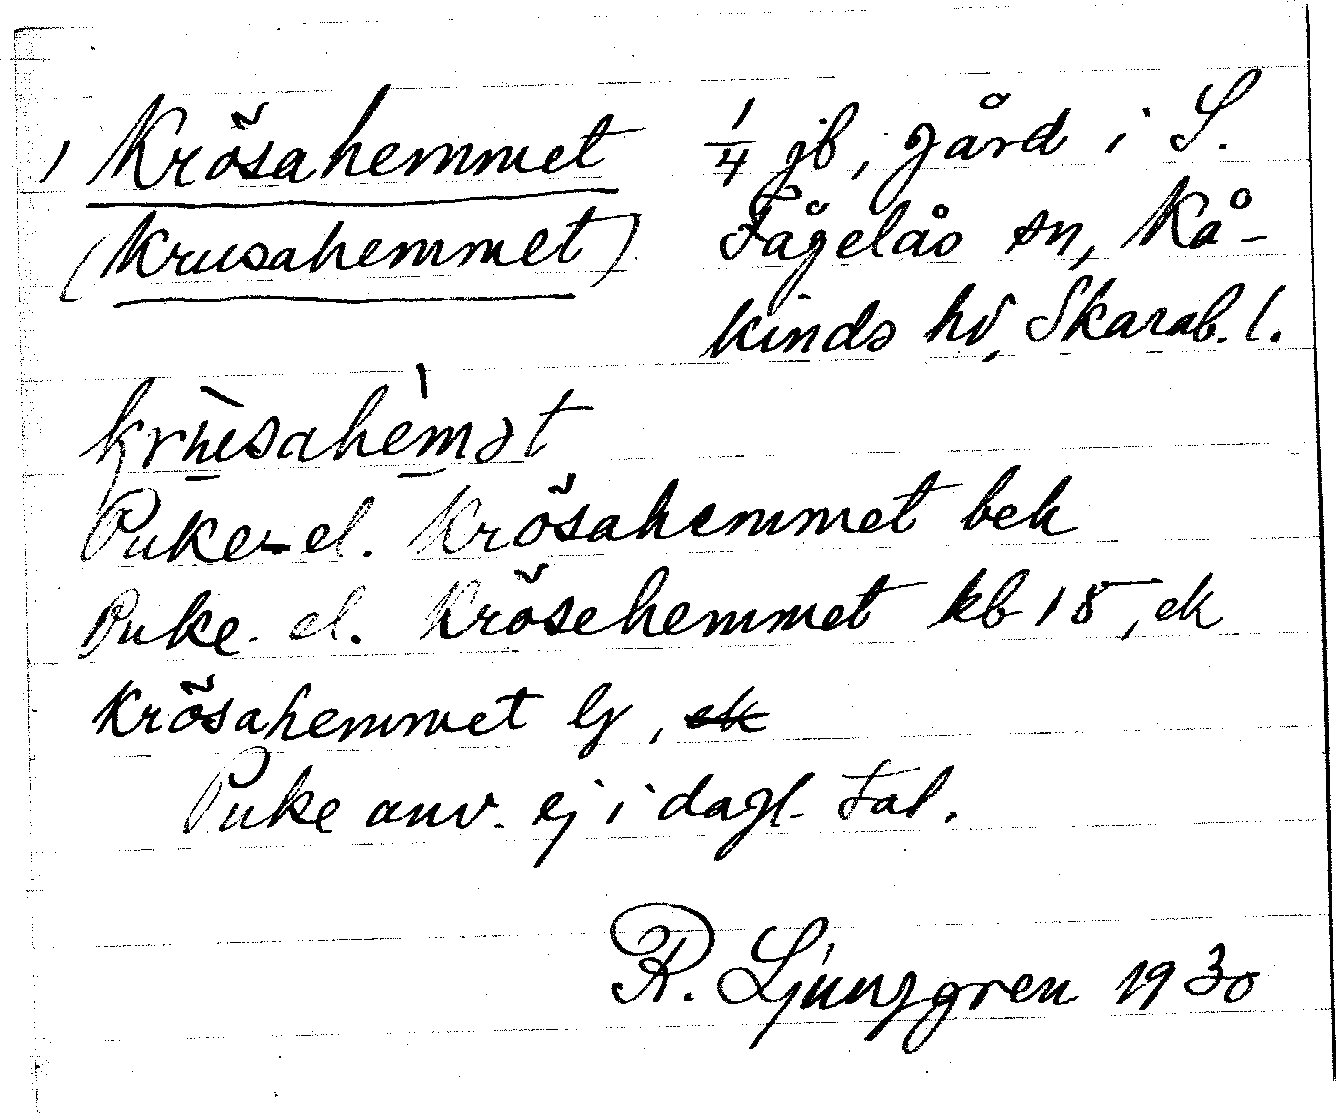 1 Krösahemmet 1/4 jb, gård i S.
(Krusahemmet) Fågelås sn, Kå-
kinds hd, Skarab. l.
krùsahémət
Puke- el. Krösahemmet bek
Puke- el. Krösehemmet kb 15, ek
Krösahemmet lj, ek
Puke anv. ej i dagl. tal.
R. Ljunggren 1930